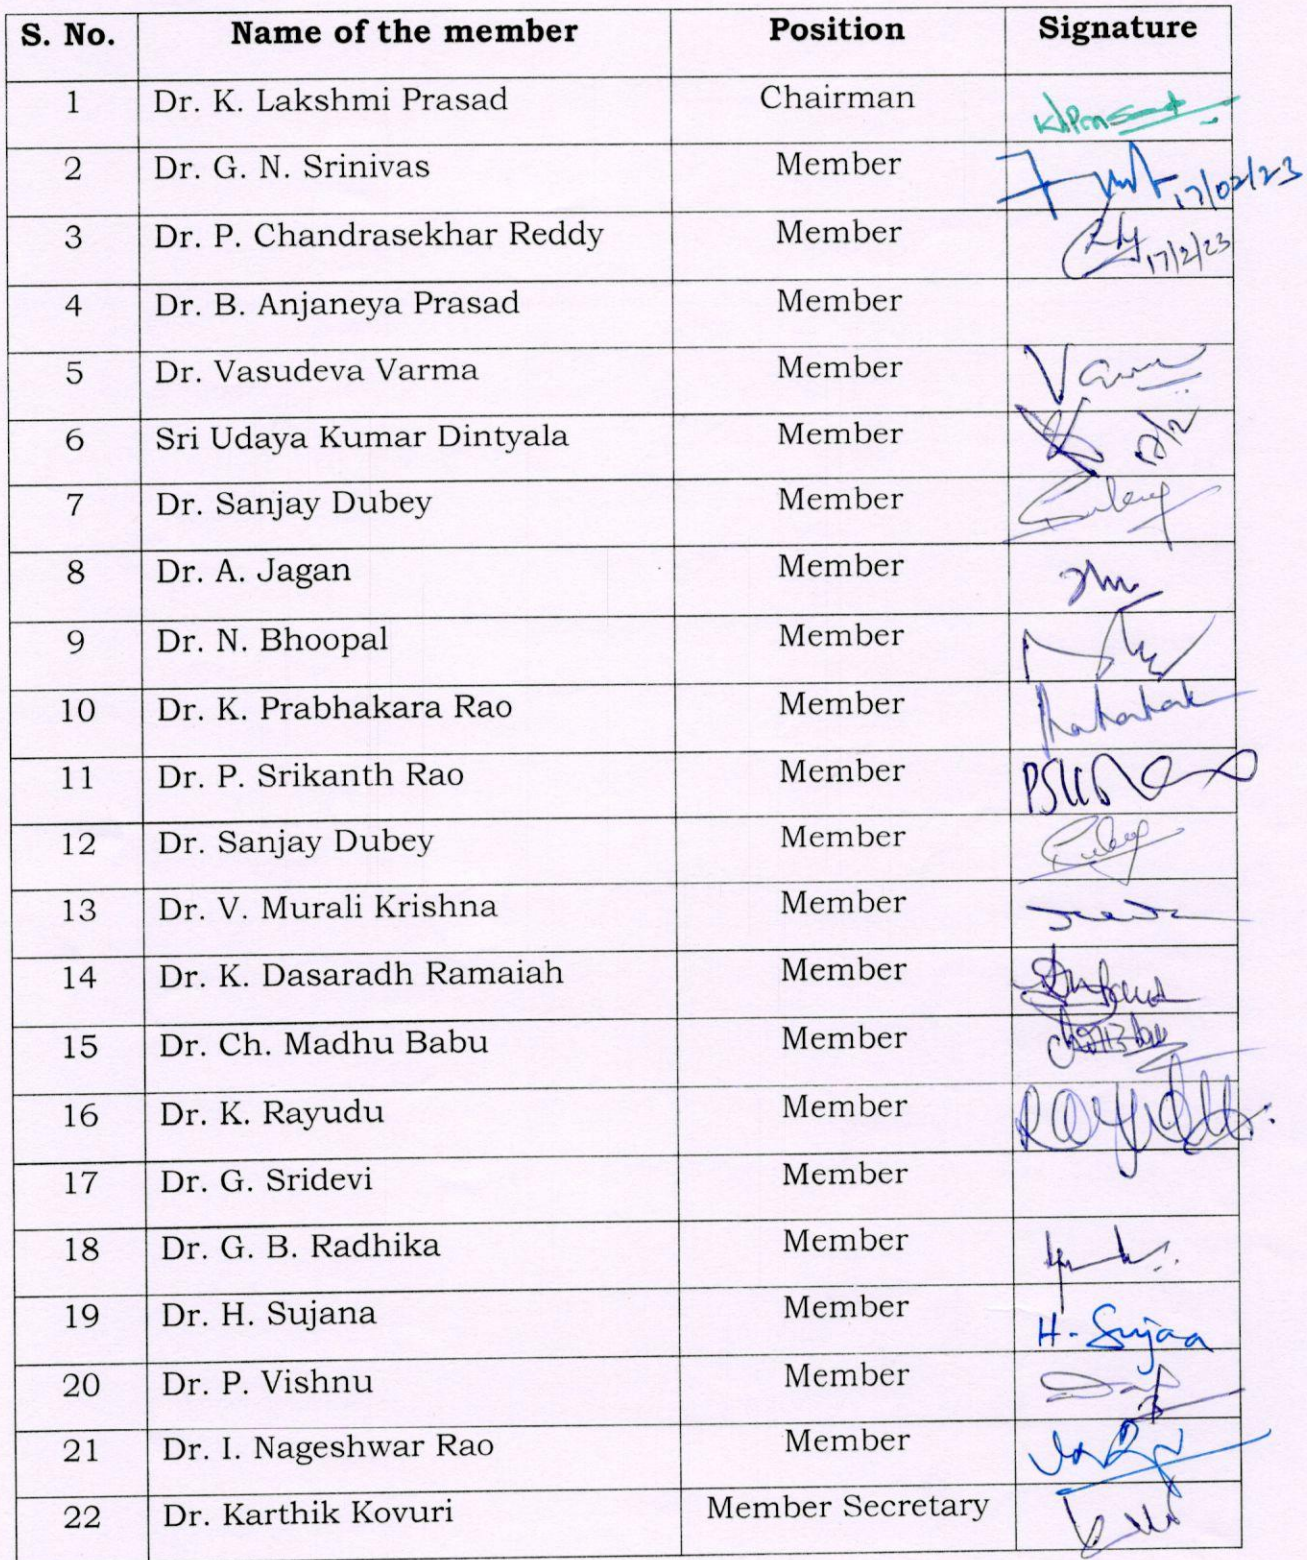 S. No. Name of the member Position Signature
1 Dr. K. Lakshmi Prasad Chairman KLPrasad
2 Dr. G. N. Srinivas Member 17/02/23
3 Dr. P. Chandrasekhar Reddy Member 17/2/23
4 Dr. B. Anjaneya Prasad Member
5 Dr. Vasudeva Varma Member
6 Sri Udaya Kumar Dintyala Member 17/2
7 Dr. Sanjay Dubey Member
8 Dr. A. Jagan Member
9 Dr. N. Bhoopal Member
10 Dr. K. Prabhakara Rao Member
11 Dr. P. Srikanth Rao Member
12 Dr. Sanjay Dubey Member
13 Dr. V. Murali Krishna Member
14 Dr. K. Dasaradh Ramaiah Member
15 Dr. Ch. Madhu Babu Member
16 Dr. K. Rayudu Member
17 Dr. G. Sridevi Member
18 Dr. G. B. Radhika Member
19 Dr. H. Sujana Member H. Sujana
20 Dr. P. Vishnu Member
21 Dr. I. Nageshwar Rao Member
22 Dr. Karthik Kovuri Member Secretary